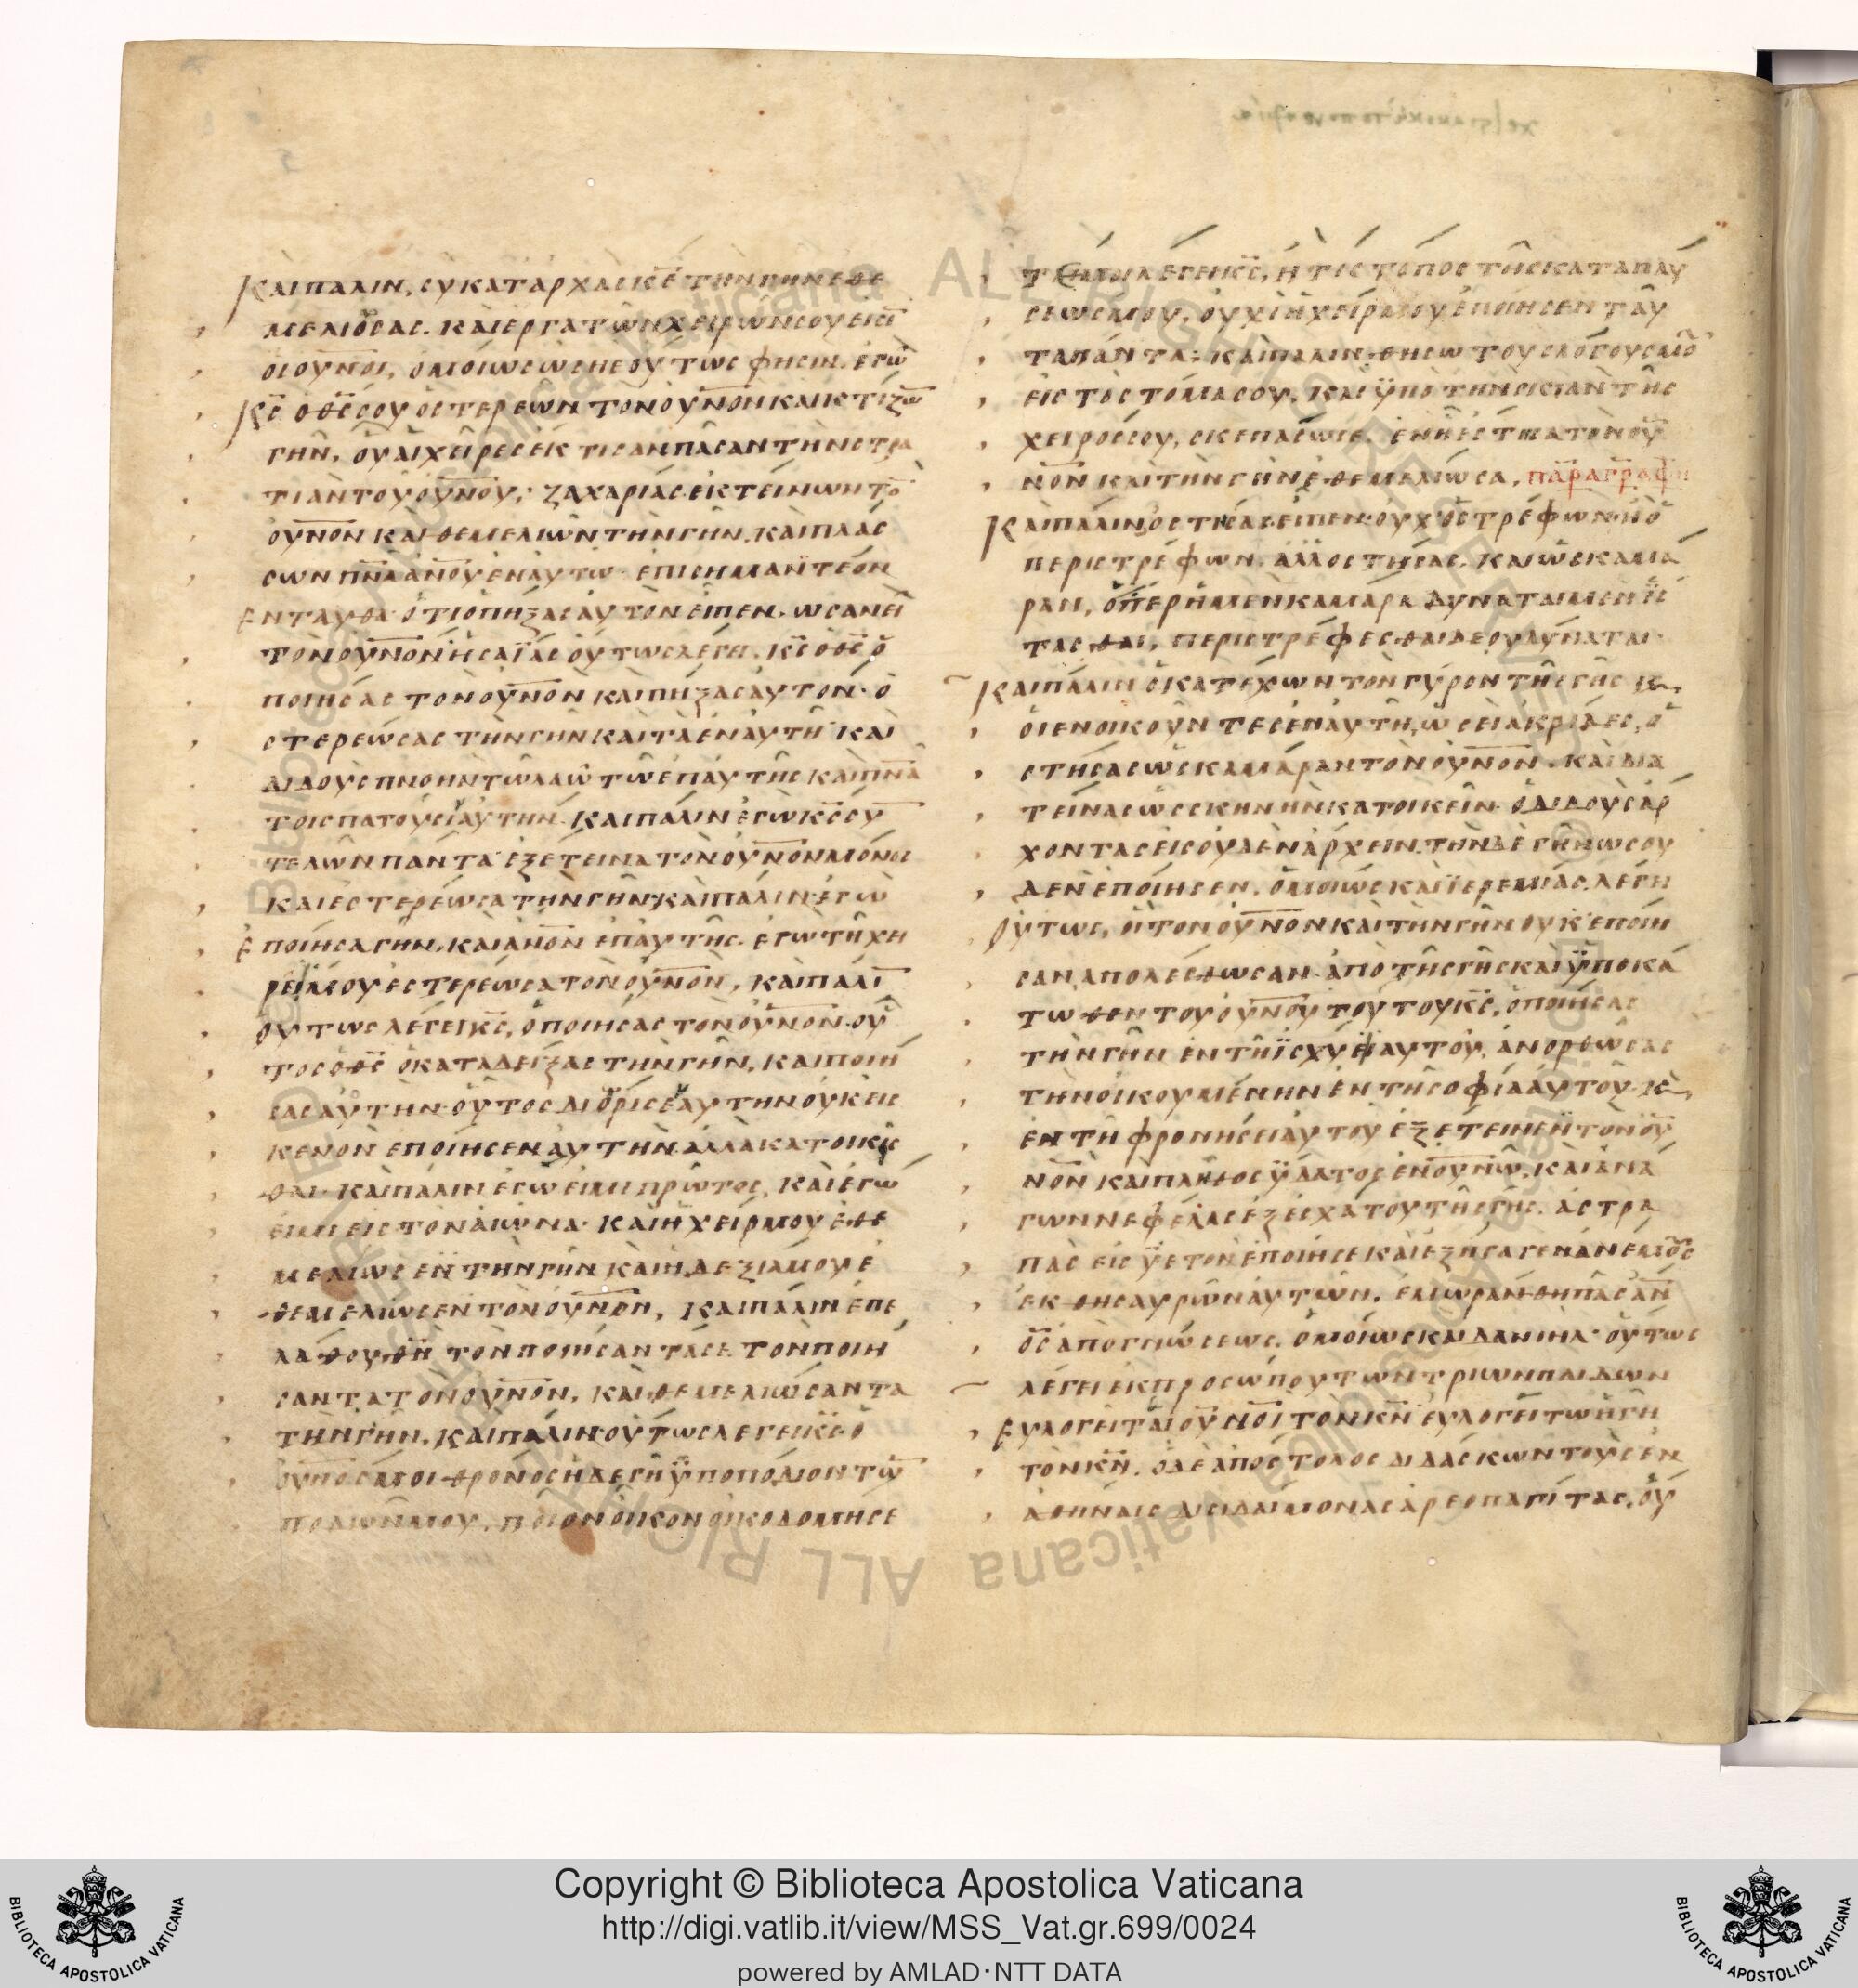 ΚΑΙΠΑΛΙΝ, ΣΥΚΑΤΑΡΧΑΣΚΕ ΤΗΝΓΗΝΕΘΕ
ΜΕΛΙΩΣΑΣ. ΚΑΙΕΡΓΑΤΩΝΧΕΙΡΩΝΣΟΥΕΙΣΙ
ΟΙΟΥΝΟΙ, ΟΜΟΙΩΣΩΣΗΕΟΥΤΩΣΦΗΣΙΝ. ΕΓΩ
ΚΣ ΟΘΣΣΟΥΟΣΤΕΡΕΩΝΤΟΝΟΥΝΟΝΚΑΙΚΤΙΖΩ
ΓΗΝ, ΟΥΑΙΧΕΙΡΕΣΕΚΤΙΣΑΝΠΑΣΑΝΤΗΝΣΤΡΑ
ΤΙΑΝΤΟΥΟΥΝΟΥ, ΖΑΧΑΡΙΑΣ·ΕΚΤΕΙΝΩΝΤΟ
ΟΥΝΟΝΚΑΙΘΕΜΕΛΙΩΝΤΗΝΓΗΝ, ΚΑΙΠΛΑΣ
ΣΩΝΠΝΑΑΝΟΥΕΝΑΥΤΩ· ΕΠΙΣΗΜΑΝΤΕΟΝ
ΕΝΤΑΥΘΑ·ΟΤΙΟΠΗΞΑΣΑΥΤΟΝΕΙΠΕΝ, ΩΣΑΝΕΙ
ΤΟΝΟΥΝΟΝΗΣΑΪΑΣΟΥΤΩΣΛΕΓΕΙ. ΚΣΟΘΣΟ
ΠΟΙΗΣΑΣΤΟΝΟΥΝΟΝΚΑΙΠΗΞΑΣΑΥΤΟΝ·Ο
ΣΤΕΡΕΩΣΑΣΤΗΝΓΗΝΚΑΙΤΑΕΝΑΥΤΗ ΚΑΙ
ΔΙΔΟΥΣΠΝΟΗΝΤΩΛΑΩΤΩΕΠΑΥΤΗΣΚΑΙΠΝΑ
ΤΟΙΣΠΑΤΟΥΣΙΑΥΤΗΝ. ΚΑΙΠΑΛΙΝΕΓΩΚΣΣΥ
ΤΕΛΩΝΠΑΝΤΑ ΕΞΕΤΕΙΝΑΤΟΝΟΥΝΟΝΜΟΝΟΣ
ΚΑΙΕΣΤΕΡΕΩΣΑΤΗΝΓΗΝ·ΚΑΙΠΑΛΙΝΕΓΩ
ΕΠΟΙΗΣΑΓΗΝ, ΚΑΙΑΝΟΝΕΠΑΥΤΗΣ. ΕΓΩΤΗΧΕΙ
ΡΕΙΜΟΥΕΣΤΕΡΕΩΣΑΤΟΝΟΥΝΟΝ, ΚΑΙΠΑΛΙ
ΟΥΤΩΣΛΕΓΕΙΚΣ, ΟΠΟΙΗΣΑΣΤΟΝΟΥΝΟΝ·ΟΥ
ΤΟΣΟΘΣ ΟΚΑΤΑΔΕΙΞΑΣΤΗΝΓΗΝ, ΚΑΙΠΟΙΗ
ΣΑΣΑΥΤΗΝ·ΟΥΤΟΣΔΙΟΡΙΣΕΑΥΤΗΝΟΥΚΕΙΣ
ΚΕΝΟΝΕΠΟΙΗΣΕΝΑΥΤΗΝ·ΑΛΛΑΚΑΤΟΙΚΕΙΣ
ΘΑΙ· ΚΑΙΠΑΛΙΝΕΓΩΕΙΜΙΠΡΩΤΟΣ, ΚΑΙΕΓΩ
ΕΙΜΙΕΙΣΤΟΝΑΙΩΝΑ· ΚΑΙΗΧΕΙΡΜΟΥΕΘΕ
ΜΕΛΙΩΣΕΝΤΗΝΓΗΝΚΑΙΗΔΕΞΙΑΜΟΥΕ
ΘΕΜΕΛΙΩΣΕΝΤΟΝΟΥΝΟΝ, ΚΑΙΠΑΛΙΝΕΠΕ
ΛΑΘΟΥΘΝ ΤΟΝΠΟΙΗΣΑΝΤΑΣΕ ΤΟΝΠΟΙΗ
ΣΑΝΤΑΤΟΝΟΥΝΟΝ, ΚΑΙΘΕΜΕΛΙΩΣΑΝΤΑ
ΤΗΝΓΗΝ, ΚΑΙΠΑΛΙΝΟΥΤΩΣΛΕΓΕΙΚΣ·Ο
ΟΥΝΟΣΜΟΙΘΡΟΝΟΣΗΔΕΓΗΫΠΟΠΟΔΙΟΝΤΩ
ΠΟΔΩΝΜΟΥ, ΠΟΙΟΝΟΙΚΟΝΟΙΚΟΔΟΜΗΣΕ
ΤΕΜΟΙΛΕΓΕΙΚΣ, ΗΤΙΣΤΟΠΟΣΤΗΣΚΑΤΑΠΑΥ
ΣΕΩΣΜΟΥ, ΟΥΧΙΗΧΕΙΡΜΟΥΕΠΟΙΗΣΕΝΤΑΥ
ΤΑΠΑΝΤΑ· ΚΑΙΠΑΛΙΝΘΗΣΩΤΟΥΣΛΟΓΟΥΣΜΟΥ
ΕΙΣΤΟΣΤΟΜΑΣΟΥ, ΚΑΙΫΠΟΤΗΝΣΚΙΑΝΤΗΣ
ΧΕΙΡΟΣΣΟΥ, ΣΚΕΠΑΣΩΣΕ. ΕΝΗΕΣΤΗΣΑΤΟΝΟΥ
ΝΟΝΚΑΙΤΗΝΓΗΝΕΘΕΜΕΛΙΩΣΑ, ΠΑΡΑΓΡΑΦΗ
ΚΑΙΠΑΛΙΝΟΣΤΗΣΑΣΕΙΠΕΝ·ΟΥΧΟΣΤΡΕΦΩΝΗΟ
ΠΕΡΙΣΤΡΕΦΩΝ. ΑΛΛΟΣΤΗΣΑΣ, ΚΑΙΩΣΚΑΜΑ
ΡΑΝ, ΟΠΕΡΗΜΕΝΚΑΜΑΡΑΔΥΝΑΤΑΙΜΕΝΙΣ
ΤΑΣΘΑΙ, ΠΕΡΙΣΤΡΕΦΕΣΘΑΙΔΕΟΥΔΥΝΑΤΑΙ·
ΚΑΙΠΑΛΙΝΟΚΑΤΕΧΩΝΤΟΝΓΥΡΟΝΤΗΣΓΗΣΚΑΙ
ΟΙΕΝΟΙΚΟΥΝΤΕΣΕΝΑΥΤΗ, ΩΣΕΙΑΚΡΙΔΕΣ, Ο
ΣΤΗΣΑΣΩΣΚΑΜΑΡΑΝΤΟΝΟΥΝΟΝ. ΚΑΙΔΙΑ
ΤΕΙΝΑΣΩΣΣΚΗΝΗΝΚΑΤΟΙΚΕΙΝ· ΟΔΙΔΟΥΣΑΡ
ΧΟΝΤΑΣΕΙΣΟΥΔΕΝΑΡΧΕΙΝ, ΤΗΝΔΕΓΗΝΩΣΟΥ
ΔΕΝΕΠΟΙΗΣΕΝ. ΟΜΟΙΩΣΚΑΙΪΕΡΕΜΙΑΣ, ΛΕΓΕΙ
ΟΥΤΩΣ, ΟΙΤΟΝΟΥΝΟΝΚΑΙΤΗΝΓΗΝΟΥΚΕΠΟΙΗ
ΣΑΝ, ΑΠΟΛΕΣΘΩΣΑΝ·ΑΠΟΤΗΣΓΗΣΚΑΙΫΠΟΚΑ
ΤΩΘΕΝΤΟΥΟΥΝΟΥΤΟΥΤΟΥΚΣ, ΟΠΟΙΗΣΑΣ
ΤΗΝΓΗΝΕΝΤΗΪΣΧΥΪΑΥΤΟΥ, ΑΝΟΡΘΩΣΑΣ
ΤΗΝΟΙΚΟΥΜΕΝΗΝΕΝΤΗΣΟΦΙΑΑΥΤΟΥ·ΚΑΙ
ΕΝΤΗΦΡΟΝΗΣΕΙΑΥΤΟΥΕΞΕΤΕΙΝΕΝΤΟΝΟΥ
ΝΟΝΚΑΙΠΛΗΘΟΣΫΔΑΤΟΣΕΝΟΥΝΩ, ΚΑΙΑΝΑ
ΓΩΝΝΕΦΕΛΑΣΕΞΕΣΧΑΤΟΥΤΗΣΓΗΣ. ΑΣΤΡΑ
ΠΑΣΕΙΣΫΕΤΟΝΕΠΟΙΗΣΕΚΑΙΕΞΗΓΑΓΕΝΑΝΕΜΟΥΣ
ΕΚΘΗΣΑΥΡΩΝΑΥΤΩΝ, ΕΜΩΡΑΝΘΗΠΑΣΑΝ
ΟΣΑΠΟΓΝΩΣΕΩΣ. ΟΜΟΙΩΣΚΑΙΔΑΝΙΗΛ·ΟΥΤΩΣ
ΛΕΓΕΙΕΚΠΡΟΣΩΠΟΥΤΩΝΤΡΙΩΝΠΑΙΔΩΝ
ΕΥΛΟΓΕΙΤΑΙΟΥΝΟΙΤΟΝΚΝ ΕΥΛΟΓΕΙΤΩΗΓΗ
ΤΟΝΚΝ. ΟΔΕΑΠΟΣΤΟΛΟΣΔΙΔΑΣΚΩΝΤΟΥΣΕΝ
ΑΘΗΝΑΙΣΔΙΣΙΔΑΙΜΟΝΑΣΑΡΕΟΠΑΓΙΤΑΣ, ΟΥ
Copyright © Biblioteca Apostolica Vaticana
http://digi.vatlib.it/view/MSS_Vat.gr.699/0024
powered by AMLAD·NTT DATA
BIBLIOTECA APOSTOLICA VATICANA
BIBLIOTECA APOSTOLICA VATICANA